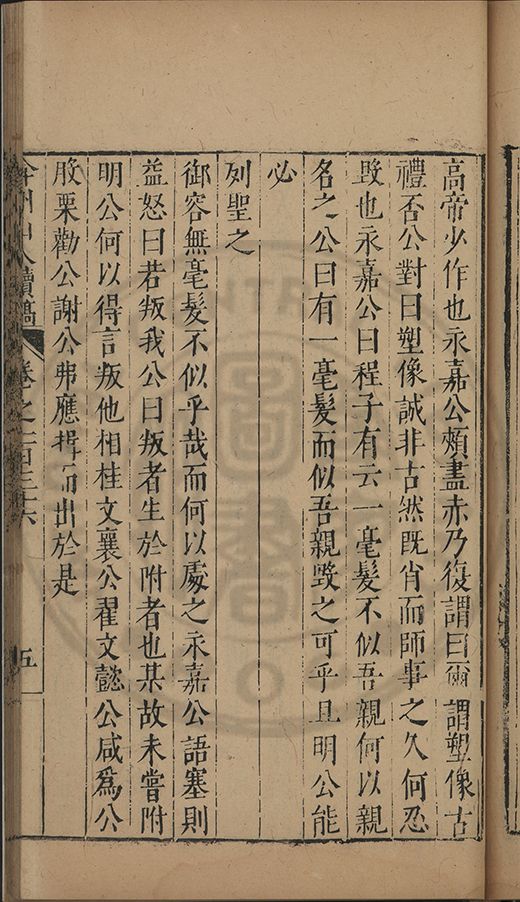 高帝少作也永嘉公頰盡赤乃復謂曰爾謂塑像古
禮否公對曰塑像誠非古然既肖而師事之久何忍
毀也永嘉公曰程子有云一毫髮不似吾親何以親
名之公曰有一毫髮而似吾親毀之可乎且明公能
必
列聖之
御容無毫髮不似乎哉而何以處之永嘉公語塞則
益怒曰若叛我公曰叛者生於附者也某故未嘗附
明公何以得言叛他相桂文襄公翟文懿公咸爲公
股栗勸公謝公弗應揖而出於是
卷之一百三十六
五